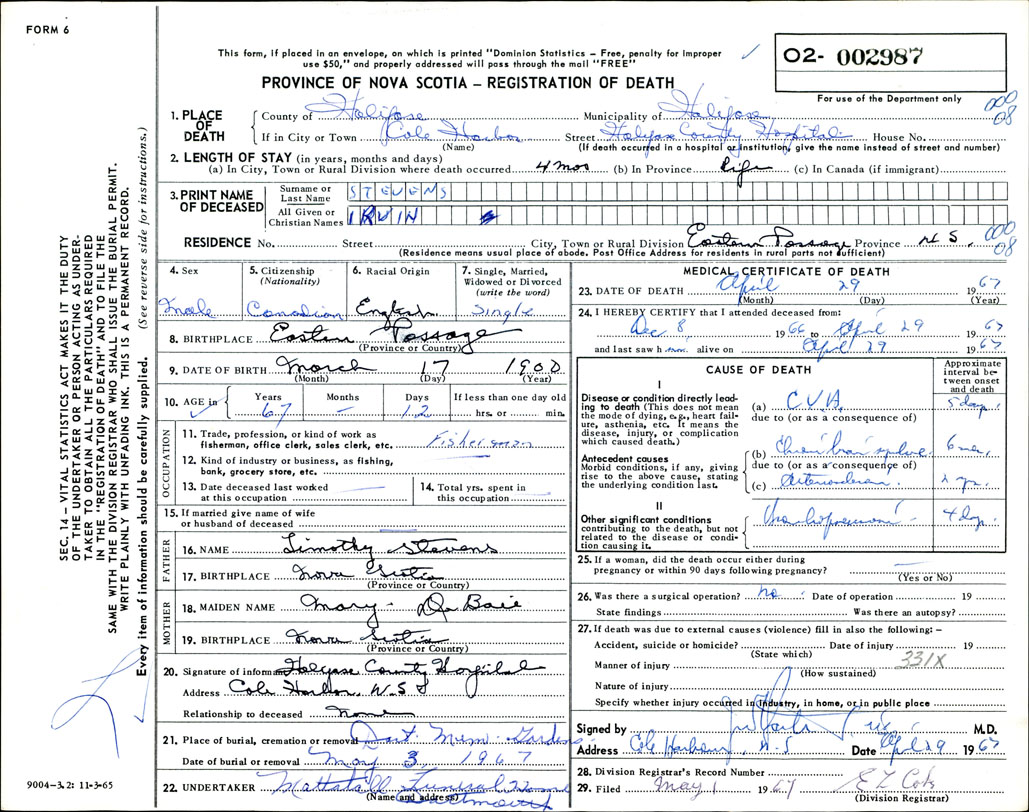 FORM 6
This form, if placed in an envelope, on which is printed "Dominion Statistics – Free, penalty for improper
use $50," and properly addressed will pass through the mail "FREE"
O2- 002987
PROVINCE OF NOVA SCOTIA – REGISTRATION OF DEATH
For use of the Department only
000
08
1. PLACE OF DEATH
County of Halifax Municipality of Halifax
If in City or Town Cole Harbor Street Halifax County Hospital House No.
(Name) (If death occurred in a hospital or institution, give the name instead of street and number)
2. LENGTH OF STAY (in years, months and days)
(a) In City, Town or Rural Division where death occurred 4 mos (b) In Province Life (c) In Canada (if immigrant)
3. PRINT NAME OF DECEASED
Surname or Last Name STEVENS
All Given or Christian Names IRVIN
RESIDENCE No. Street City, Town or Rural Division Eastern Passage Province N.S.
000
08
(Residence means usual place of abode. Post Office Address for residents in rural parts not sufficient)
4. Sex
Male
5. Citizenship
(Nationality)
Canadian
6. Racial Origin
English
7. Single, Married,
Widowed or Divorced
(write the word)
Single
8. BIRTHPLACE Eastern Passage
(Province or Country)
9. DATE OF BIRTH March 17 1900
(Month) (Day) (Year)
10. AGE in
Years Months Days If less than one day old
67 – 12 hrs. or min.
OCCUPATION
11. Trade, profession, or kind of work as
fisherman, office clerk, sales clerk, etc. Fisherman
12. Kind of industry or business, as fishing,
bank, grocery store, etc.
13. Date deceased last worked
at this occupation
14. Total yrs. spent in
this occupation
15. If married give name of wife
or husband of deceased
FATHER
16. NAME Timothy Stevens
17. BIRTHPLACE Nova Scotia
(Province or Country)
MOTHER
18. MAIDEN NAME Mary - De Baie
19. BIRTHPLACE Nova Scotia
(Province or Country)
20. Signature of informant Halifax County Hospital
Address Cole Harbor, N.S
Relationship to deceased None
21. Place of burial, cremation or removal Dart. Mem. Gardens
Date of burial or removal May 3, 1967
22. UNDERTAKER Mattatall Funeral Home
(Name and address) Dartmouth
MEDICAL CERTIFICATE OF DEATH
23. DATE OF DEATH April 29 1967
(Month) (Day) (Year)
24. I HEREBY CERTIFY that I attended deceased from:
Dec 8 1966 to April 29 1967
and last saw h alive on April 29 1967
CAUSE OF DEATH
Approximate
interval be-
tween onset
and death
I
Disease or condition directly lead-
ing to death (This does not mean
the mode of dying, e.g., heart fail-
ure, asthenia, etc. It means the
disease, injury, or complication
which caused death.)
(a) C.V.A. 5 days
due to (or as a consequence of)
Antecedent causes
Morbid conditions, if any, giving
rise to the above cause, stating
the underlying condition last.
(b)
due to (or as a consequence of)
(c)
II
Other significant conditions
contributing to the death, but not
related to the disease or condi-
tion causing it.
4 days
25. If a woman, did the death occur either during
pregnancy or within 90 days following pregnancy?
(Yes or No)
26. Was there a surgical operation? no Date of operation 19
State findings Was there an autopsy?
27. If death was due to external causes (violence) fill in also the following: –
Accident, suicide or homicide? Date of injury 19
(State which)
331X
Manner of injury
(How sustained)
Nature of injury
Specify whether injury occurred in industry, in home, or in public place
Signed by M.D.
Address Cole Harbour, N-S Date April 29 1967
28. Division Registrar's Record Number
29. Filed May 1 1967
(Division Registrar)
SEC. 14 – VITAL STATISTICS ACT MAKES IT THE DUTY
OF THE UNDERTAKER OR PERSON ACTING AS UNDER-
TAKER TO OBTAIN ALL THE PARTICULARS REQUIRED
IN THE "REGISTRATION OF DEATH" AND TO FILE THE
SAME WITH THE DIVISION REGISTRAR WHO SHALL ISSUE THE BURIAL PERMIT.
WRITE PLAINLY WITH UNFADING INK. THIS IS A PERMANENT RECORD.
Every item of information should be carefully supplied. (See reverse side for instructions.)
9004-3.2: 11-3-65